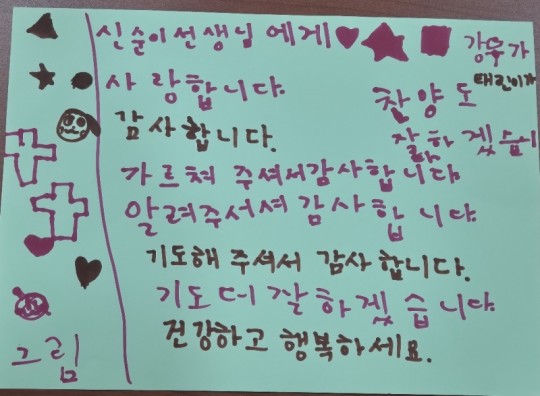 신순이선생님에게
강우가
태린이가
사랑합니다.
찬양도
잘하겠습니
감사합니다.
가르쳐 주셔서감사합니다
알려주서셔감사합니다
기도해 주셔서 감사합니다.
기도더잘하겠습니다
건강하고 행복하세요.
그림